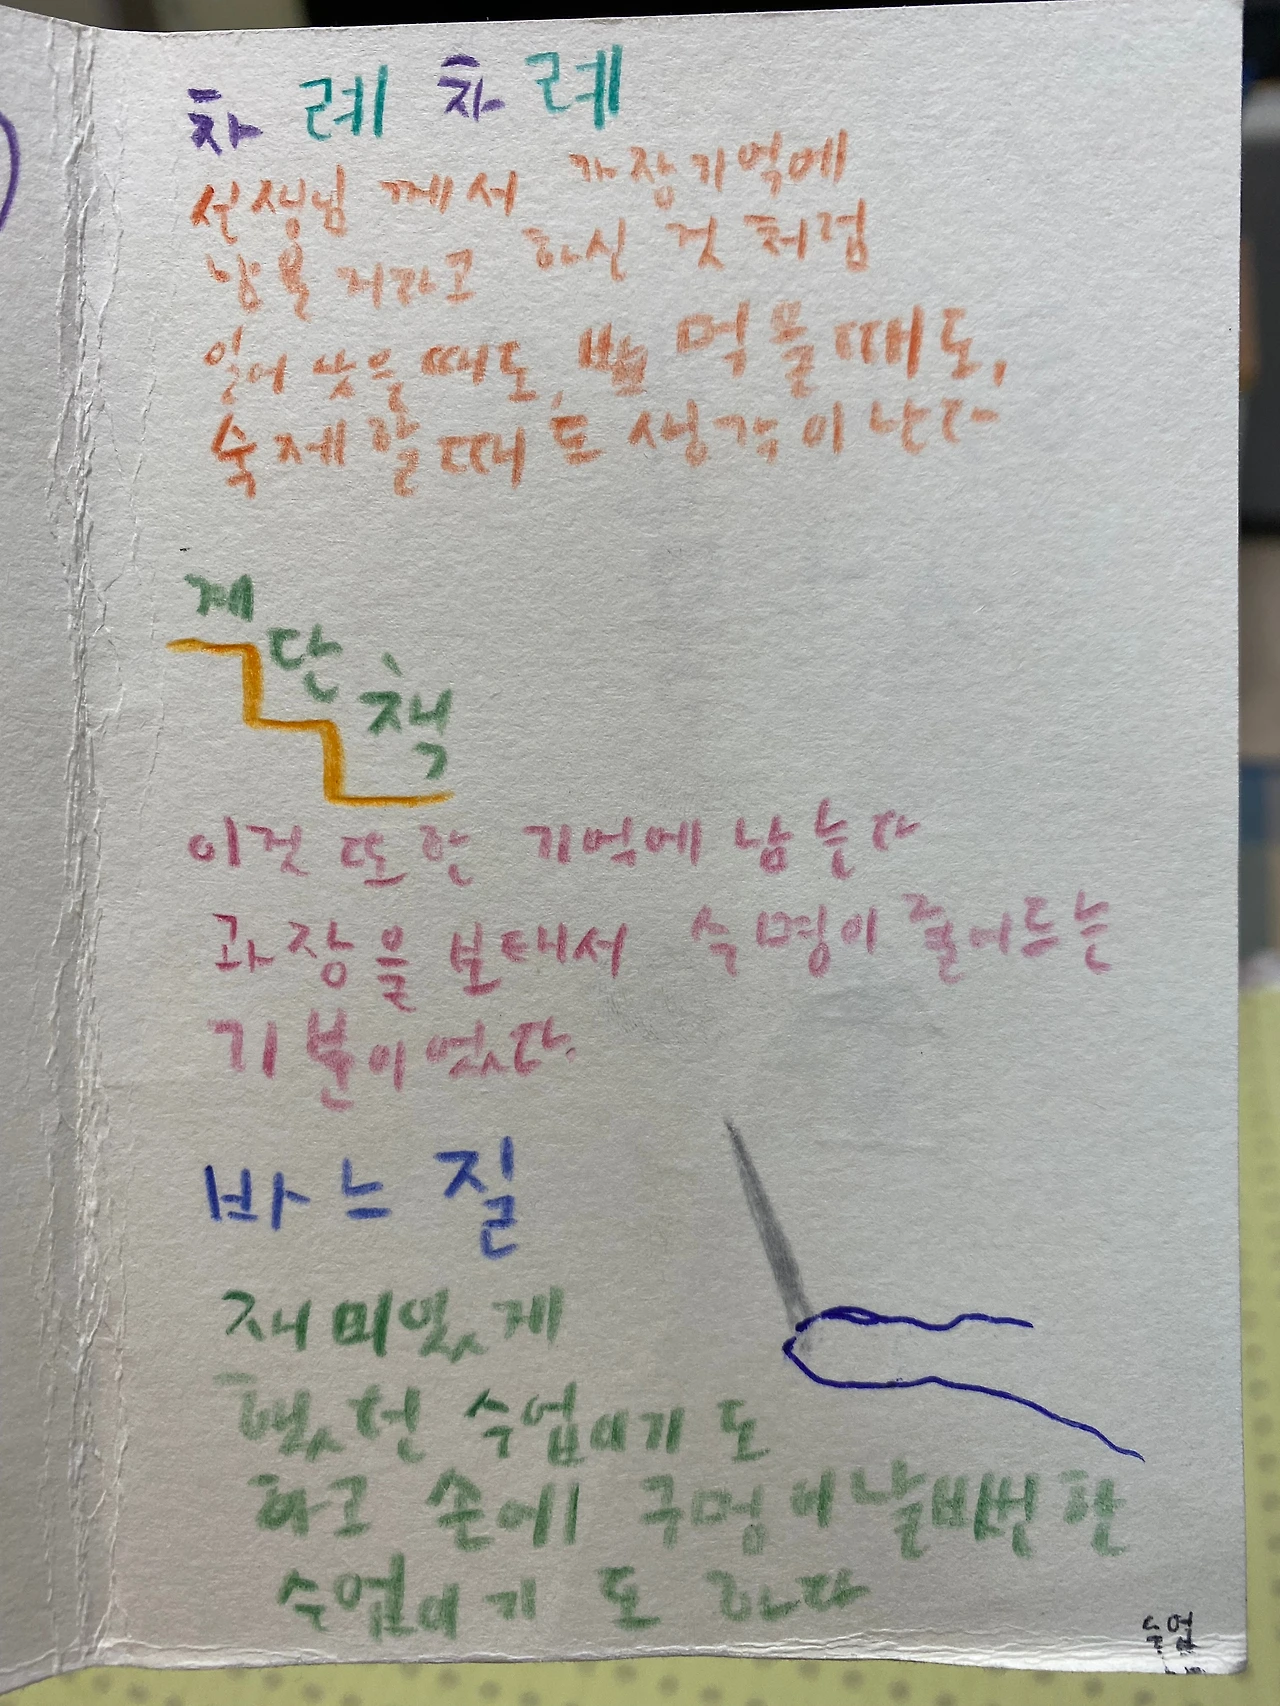 차례차례
선생님 께서 가장기억에
남을 거라고 하신 것 처럼
일어 낫을때도, 밥 먹을때도,
숙제할때도 생각이 난다
계단책
이것 또한 기억에 남는다
과장을 보태서 수명이 줄어드는
기분이였다.
바느질
재미있게
했던 수업이기도
하고 손에 구멍이 날뻔한
수업이기도 하다
수업